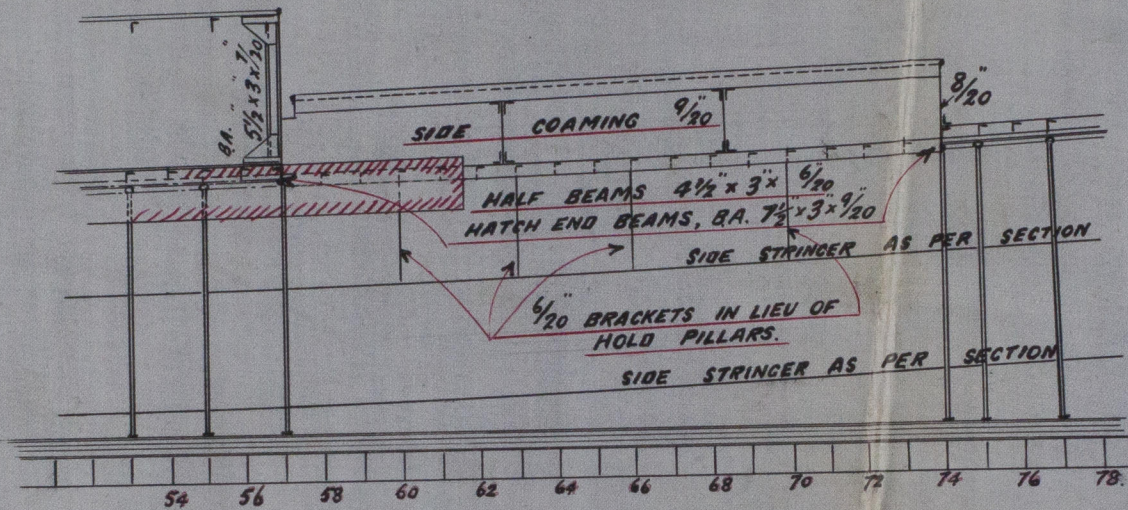 B.A. 5 1/2" x 3" x 7/20"
8/20"
SIDE COAMING 9/20"
HALF BEAMS 4 1/2" x 3" x 6/20"
HATCH END BEAMS, B.A. 7 1/2" x 3" x 9/20"
SIDE STRINGER AS PER SECTION
6/20" BRACKETS IN LIEU OF
HOLD PILLARS.
SIDE STRINGER AS PER SECTION
54 56 58 60 62 64 66 68 70 72 74 76 78.